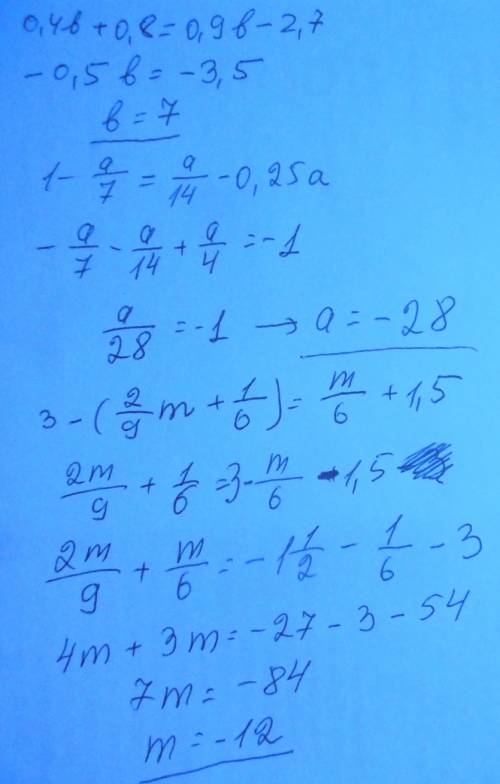 0,4b + 0,8 = 0,9b - 2,7
-0,5 b = -3,5
b = 7
1 - a/7 = a/14 - 0,25a
- a/7 - a/14 + a/4 = -1
a/28 = -1 → a = -28
3 - (2/9 m + 1/6) = m/6 + 1,5
2m/9 + 1/6 = 3 - m/6 - 1,5
2m/9 + m/6 = -1 1/2 - 1/6 - 3
4m + 3m = -27 - 3 - 54
7m = -84
m = -12